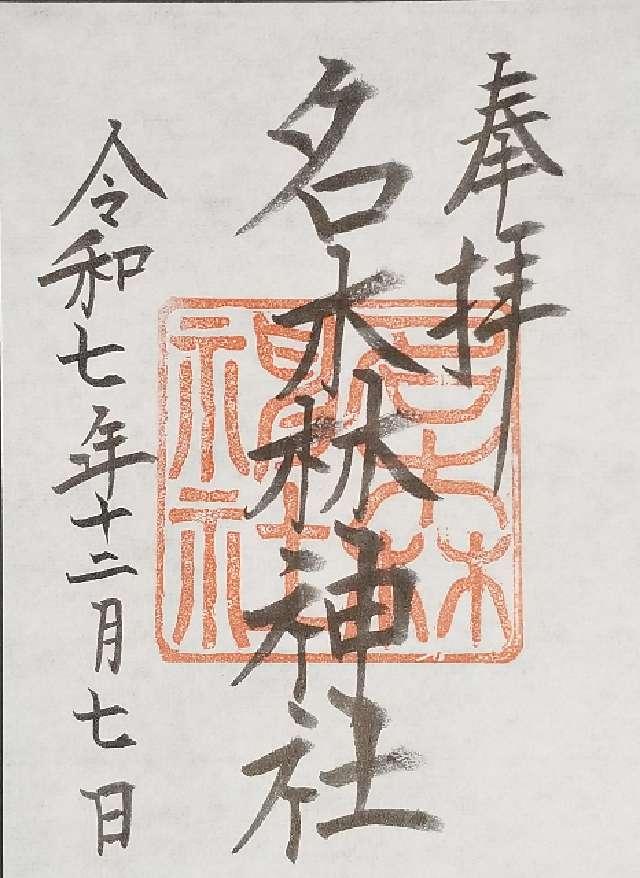 奉拝
名木林神社
令和七年十二月七日
名木林
神社